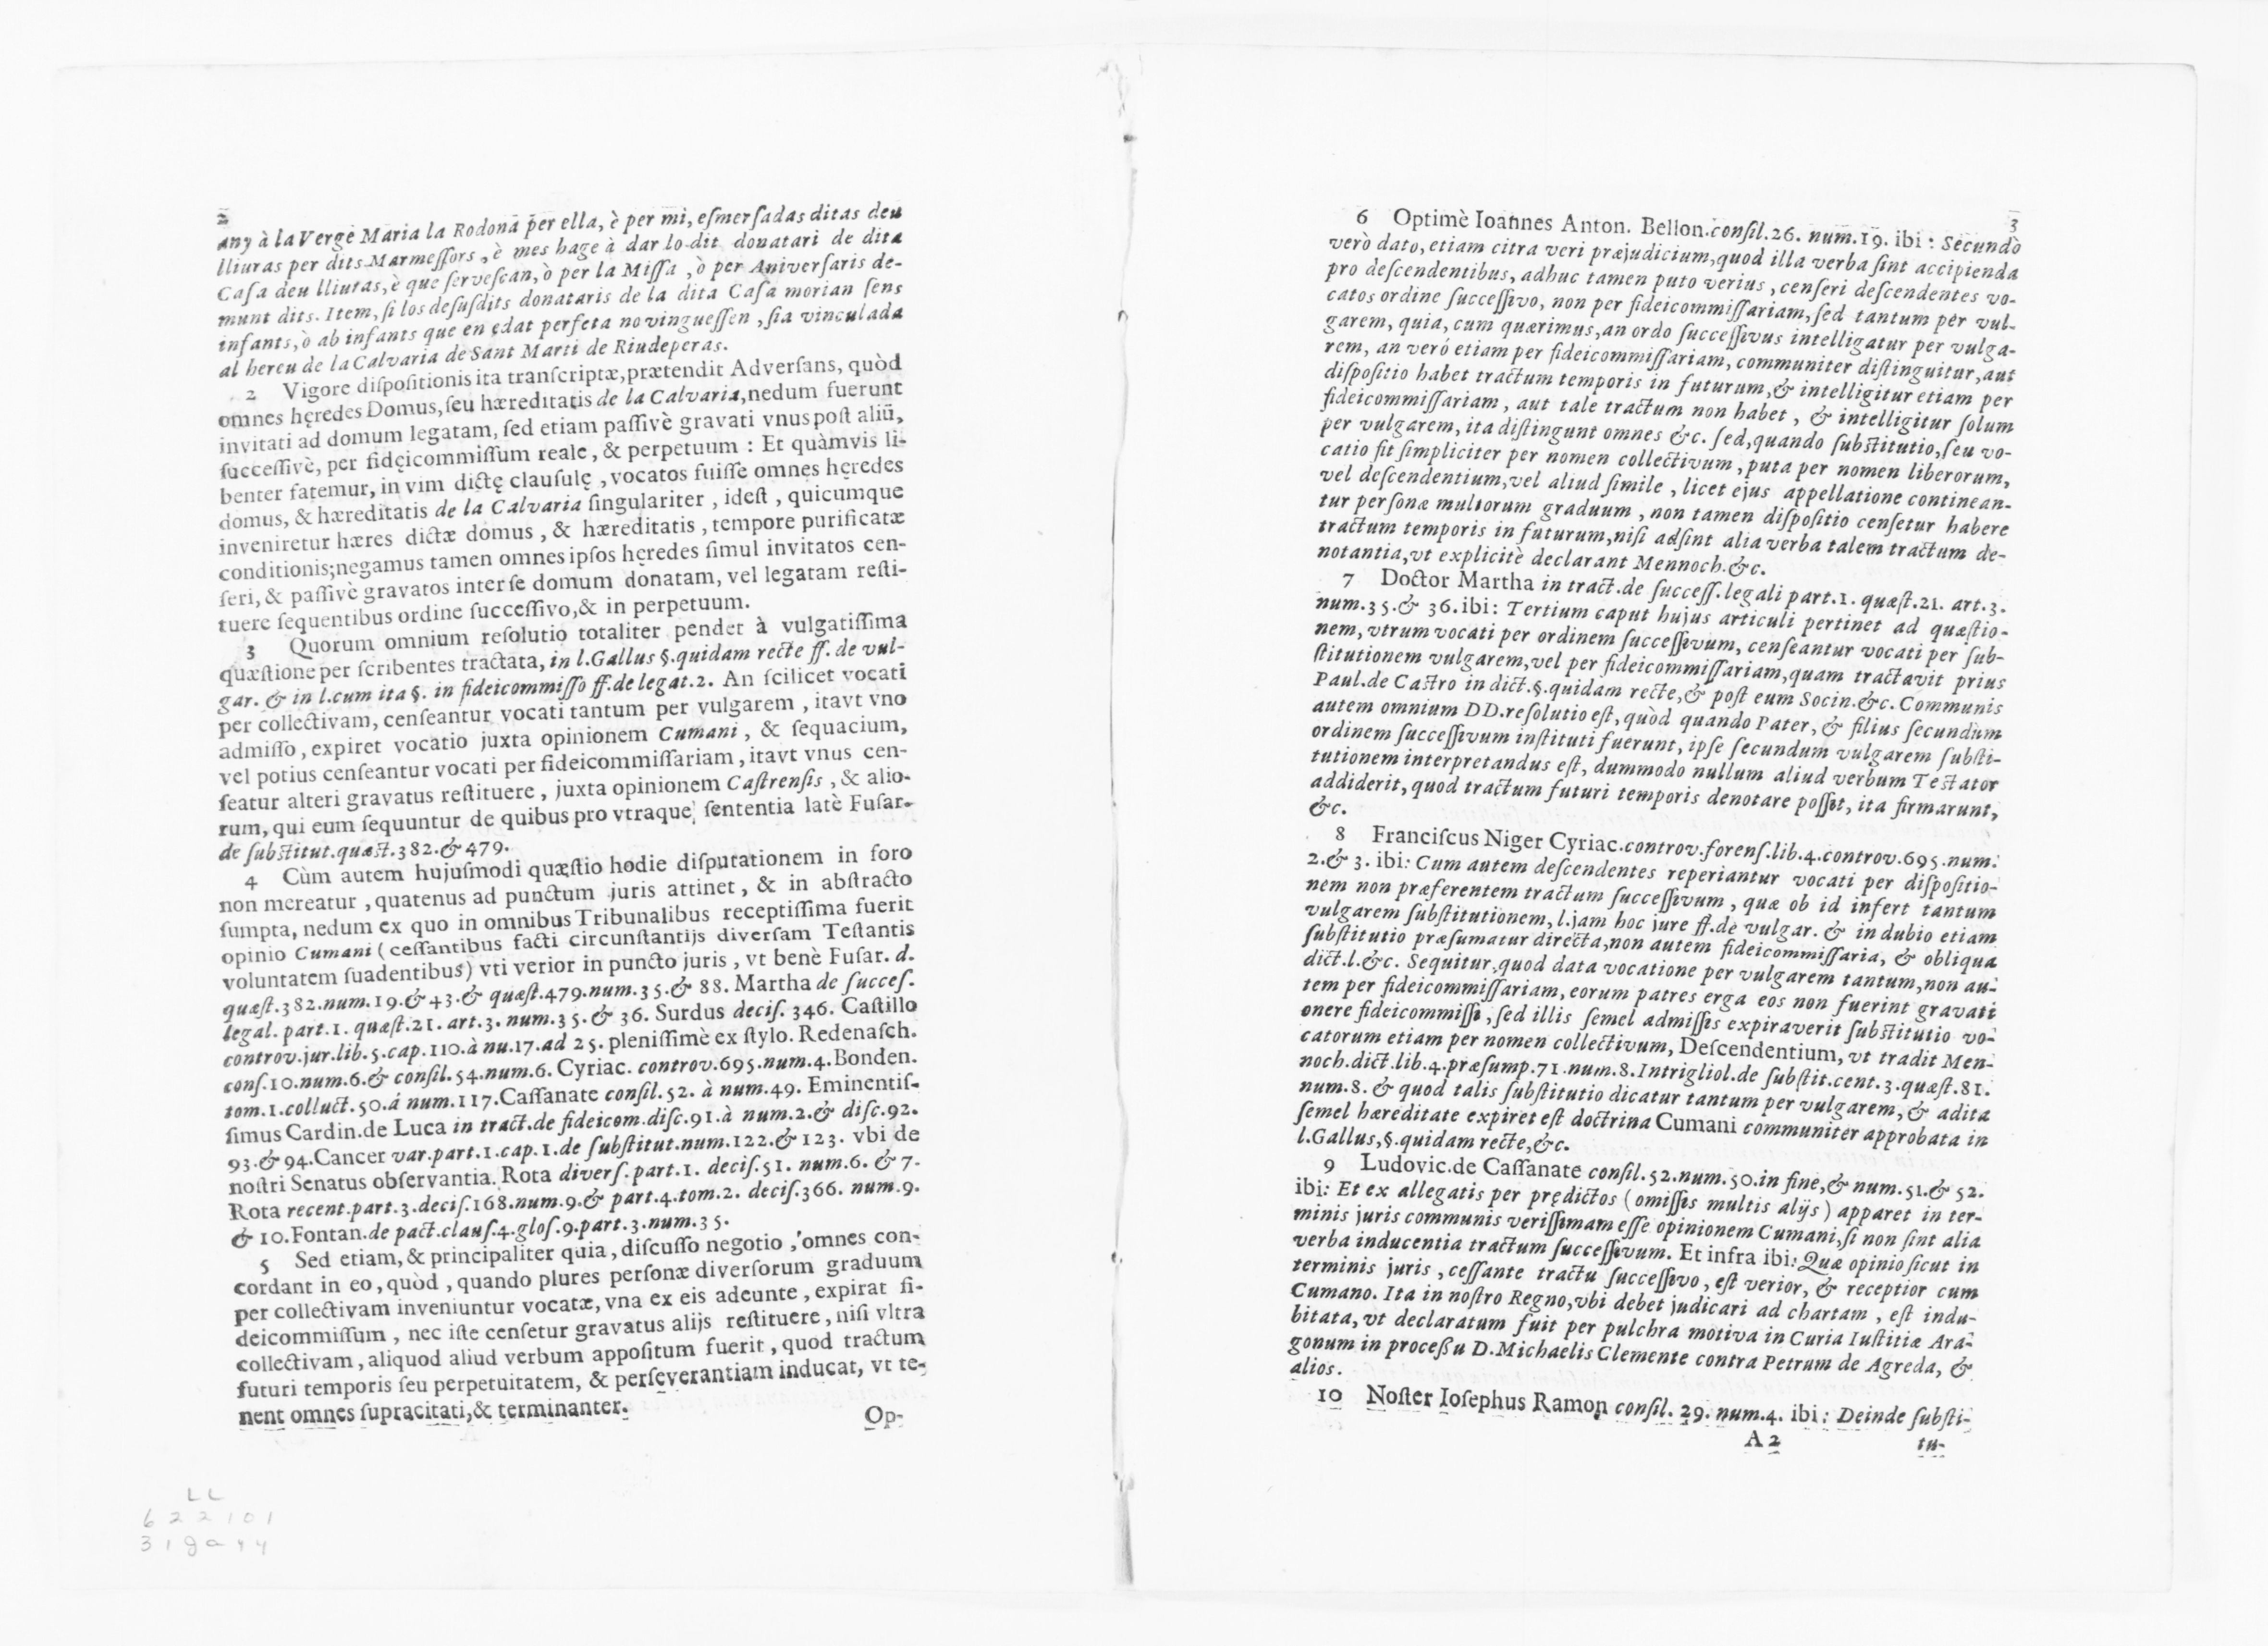 2
any à la Verge Maria la Rodona per ella, è per mi, eſmerſadas ditas deu
lliuras per dits Marmeſſors, è mes hage à dar lo dit donatari de dita
Caſa deu lliuras, è que ſerveſcan, ò per la Miſſa, ò per Aniverſaris de-
munt dits. Item, ſi los deſuſdits donataris de la dita Caſa morian ſens
infants, ò ab infants que en edat perfeta no vingueſſen, ſia vinculada
al hereu de la Calvaria de Sant Marti de Riudeperas.
2 Vigore diſpoſitionis ita tranſcriptæ, prætendit Adverſans, quòd
omnes hęredes Domus, ſeu hæreditatis de la Calvaria, nedum fuerunt
invitati ad domum legatam, ſed etiam paſſivè gravati vnus poſt aliū,
ſucceſſivè, per fidęicommiſſum reale, & perpetuum : Et quàmvis li-
benter fatemur, in vim dictę clauſulę, vocatos fuiſſe omnes hęredes
domus, & hæreditatis de la Calvaria ſingulariter, ideſt, quicumque
inveniretur hæres dictæ domus, & hæreditatis, tempore purificatæ
conditionis; negamus tamen omnes ipſos hęredes ſimul invitatos cen-
ſeri, & paſſivè gravatos inter ſe domum donatam, vel legatam reſti-
tuere ſequentibus ordine ſucceſſivo, & in perpetuum.
3 Quorum omnium reſolutio totaliter pendet à vulgatiſſima
quæſtione per ſcribentes tractata, in l. Gallus §. quidam recte ff. de vul-
gar. & in l. cum ita §. in fideicommiſſo ff. de legat. 2. An ſcilicet vocati
per collectivam, cenſeantur vocati tantum per vulgarem, itavt vno
admiſſo, expiret vocatio juxta opinionem Cumani, & ſequacium,
vel potius cenſeantur vocati per fideicommiſſariam, itavt vnus cen-
ſeatur alteri gravatus reſtituere, juxta opinionem Caſtrenſis, & alio-
rum, qui eum ſequuntur de quibus pro vtraque ſententia latè Fuſar.
de ſubſtitut. quæſt. 382. & 479.
4 Cùm autem hujuſmodi quæſtio hodie diſputationem in foro
non mereatur, quatenus ad punctum juris attinet, & in abſtracto
ſumpta, nedum ex quo in omnibus Tribunalibus receptiſſima fuerit
opinio Cumani (ceſſantibus facti circunſtantijs diverſam Teſtantis
voluntatem ſuadentibus) vti verior in puncto juris, vt benè Fuſar. d.
quæſt. 382. num. 19. & 43. & quæſt. 479. num. 35. & 88. Martha de ſucceſ.
legal. part. 1. quæſt. 21. art. 3. num. 35. & 36. Surdus deciſ. 346. Caſtillo
controv. jur. lib. 5. cap. 110. à nu. 17. ad 25. pleniſſimè ex ſtylo. Redenaſch.
conſ. 10. num. 6. & conſil. 54. num. 6. Cyriac. controv. 695. num. 4. Bonden.
tom. 1. colluct. 50. á num. 117. Caſſanate conſil. 52. à num. 49. Eminentiſ-
ſimus Cardin. de Luca in tract. de fideicom. diſc. 91. à num. 2. & diſc. 92.
93. & 94. Cancer var. part. 1. cap. 1. de ſubſtitut. num. 122. & 123. vbi de
noſtri Senatus obſervantia. Rota diverſ. part. 1. deciſ. 51. num. 6. & 7.
Rota recent. part. 3. deciſ. 168. num. 9. & part. 4. tom. 2. deciſ. 366. num. 9.
& 10. Fontan. de pact. clauſ. 4. gloſ. 9. part. 3. num. 35.
5 Sed etiam, & principaliter quia, diſcuſſo negotio, omnes con-
cordant in eo, quòd, quando plures perſonæ diverſorum graduum
per collectivam inveniuntur vocatæ, vna ex eis adeunte, expirat fi-
deicommiſſum, nec iſte cenſetur gravatus alijs reſtituere, niſi vltra
collectivam, aliquod aliud verbum appoſitum fuerit, quod tractum
futuri temporis ſeu perpetuitatem, & perſeverantiam inducat, vt te-
nent omnes ſupracitati, & terminanter.
Op-
LL
622101
31ga44
3
6 Optimè Ioannes Anton. Bellon. conſil. 26. num. 19. ibi : Secundò
verò dato, etiam citra veri præjudicium, quod illa verba ſint accipienda
pro deſcendentibus, adhuc tamen puto verius, cenſeri deſcendentes vo-
catos ordine ſucceſſivo, non per fideicommiſſariam, ſed tantum per vul-
garem, quia, cum quærimus, an ordo ſucceſſivus intelligatur per vulga-
rem, an veró etiam per fideicommiſſariam, communiter diſtinguitur, aut
diſpoſitio habet tractum temporis in futurum, & intelligitur etiam per
fideicommiſſariam, aut tale tractum non habet, & intelligitur ſolum
per vulgarem, ita diſtingunt omnes &c. ſed, quando ſubſtitutio, ſeu vo-
catio fit ſimpliciter per nomen collectivum, puta per nomen liberorum,
vel deſcendentium, vel aliud ſimile, licet ejus appellatione continean-
tur perſonæ multorum graduum, non tamen diſpoſitio cenſetur habere
tractum temporis in futurum, niſi adſint alia verba talem tractum de-
notantia, vt explicitè declarant Mennoch. &c.
7 Doctor Martha in tract. de ſucceſſ. legali part. 1. quæſt. 21. art. 3.
num. 35. & 36. ibi : Tertium caput hujus articuli pertinet ad quæſtio-
nem, vtrum vocati per ordinem ſucceſſivum, cenſeantur vocati per ſub-
ſtitutionem vulgarem, vel per fideicommiſſariam, quam tractavit prius
Paul. de Caſtro in dict. §. quidam recte, & poſt eum Socin. &c. Communis
autem omnium DD. reſolutio eſt, quòd quando Pater, & filius ſecundum
ordinem ſucceſſivum inſtituti fuerunt, ipſe ſecundum vulgarem ſubſti-
tutionem interpretandus eſt, dummodo nullum aliud verbum Teſtator
addiderit, quod tractum futuri temporis denotare poſſit, ita firmarunt,
&c.
8 Franciſcus Niger Cyriac. controv. forenſ. lib. 4. controv. 695. num.
2. & 3. ibi : Cum autem deſcendentes reperiantur vocati per diſpoſitio-
nem non præferentem tractum ſucceſſivum, quæ ob id infert tantum
vulgarem ſubſtitutionem, l. jam hoc jure ff. de vulgar. & in dubio etiam
ſubſtitutio præſumatur directa, non autem fideicommiſſaria, & obliqua
dict. l. &c. Sequitur, quod data vocatione per vulgarem tantum, non au-
tem per fideicommiſſariam, eorum patres erga eos non fuerint gravati
onere fideicommiſſi, ſed illis ſemel admiſſis expiraverit ſubſtitutio vo-
catorum etiam per nomen collectivum, Deſcendentium, vt tradit Men-
noch. dict. lib. 4. præſump. 71. num. 8. Intrigliol. de ſubſtit. cent. 3. quæſt. 81.
num. 8. & quod talis ſubſtitutio dicatur tantum per vulgarem, & adita
ſemel hæreditate expiret eſt doctrina Cumani communiter approbata in
l. Gallus, §. quidam recte, &c.
9 Ludovic. de Caſſanate conſil. 52. num. 50. in fine, & num. 51. & 52.
ibi : Et ex allegatis per prędictos (omiſſis multis alijs) apparet in ter-
minis juris communis veriſſimam eſſe opinionem Cumani, ſi non ſint alia
verba inducentia tractum ſucceſſivum. Et infra ibi : Quæ opinio ſicut in
terminis juris, ceſſante tractu ſucceſſivo, eſt verior, & receptior cum
Cumano. Ita in noſtro Regno, vbi debet judicari ad chartam, eſt indu-
bitata, vt declaratum fuit per pulchra motiva in Curia Iuſtitiæ Ara-
gonum in proceßu D. Michaelis Clemente contra Petrum de Agreda, &
alios.
10 Noſter Ioſephus Ramon conſil. 29. num. 4. ibi : Deinde ſubſti-
A 2
tu-